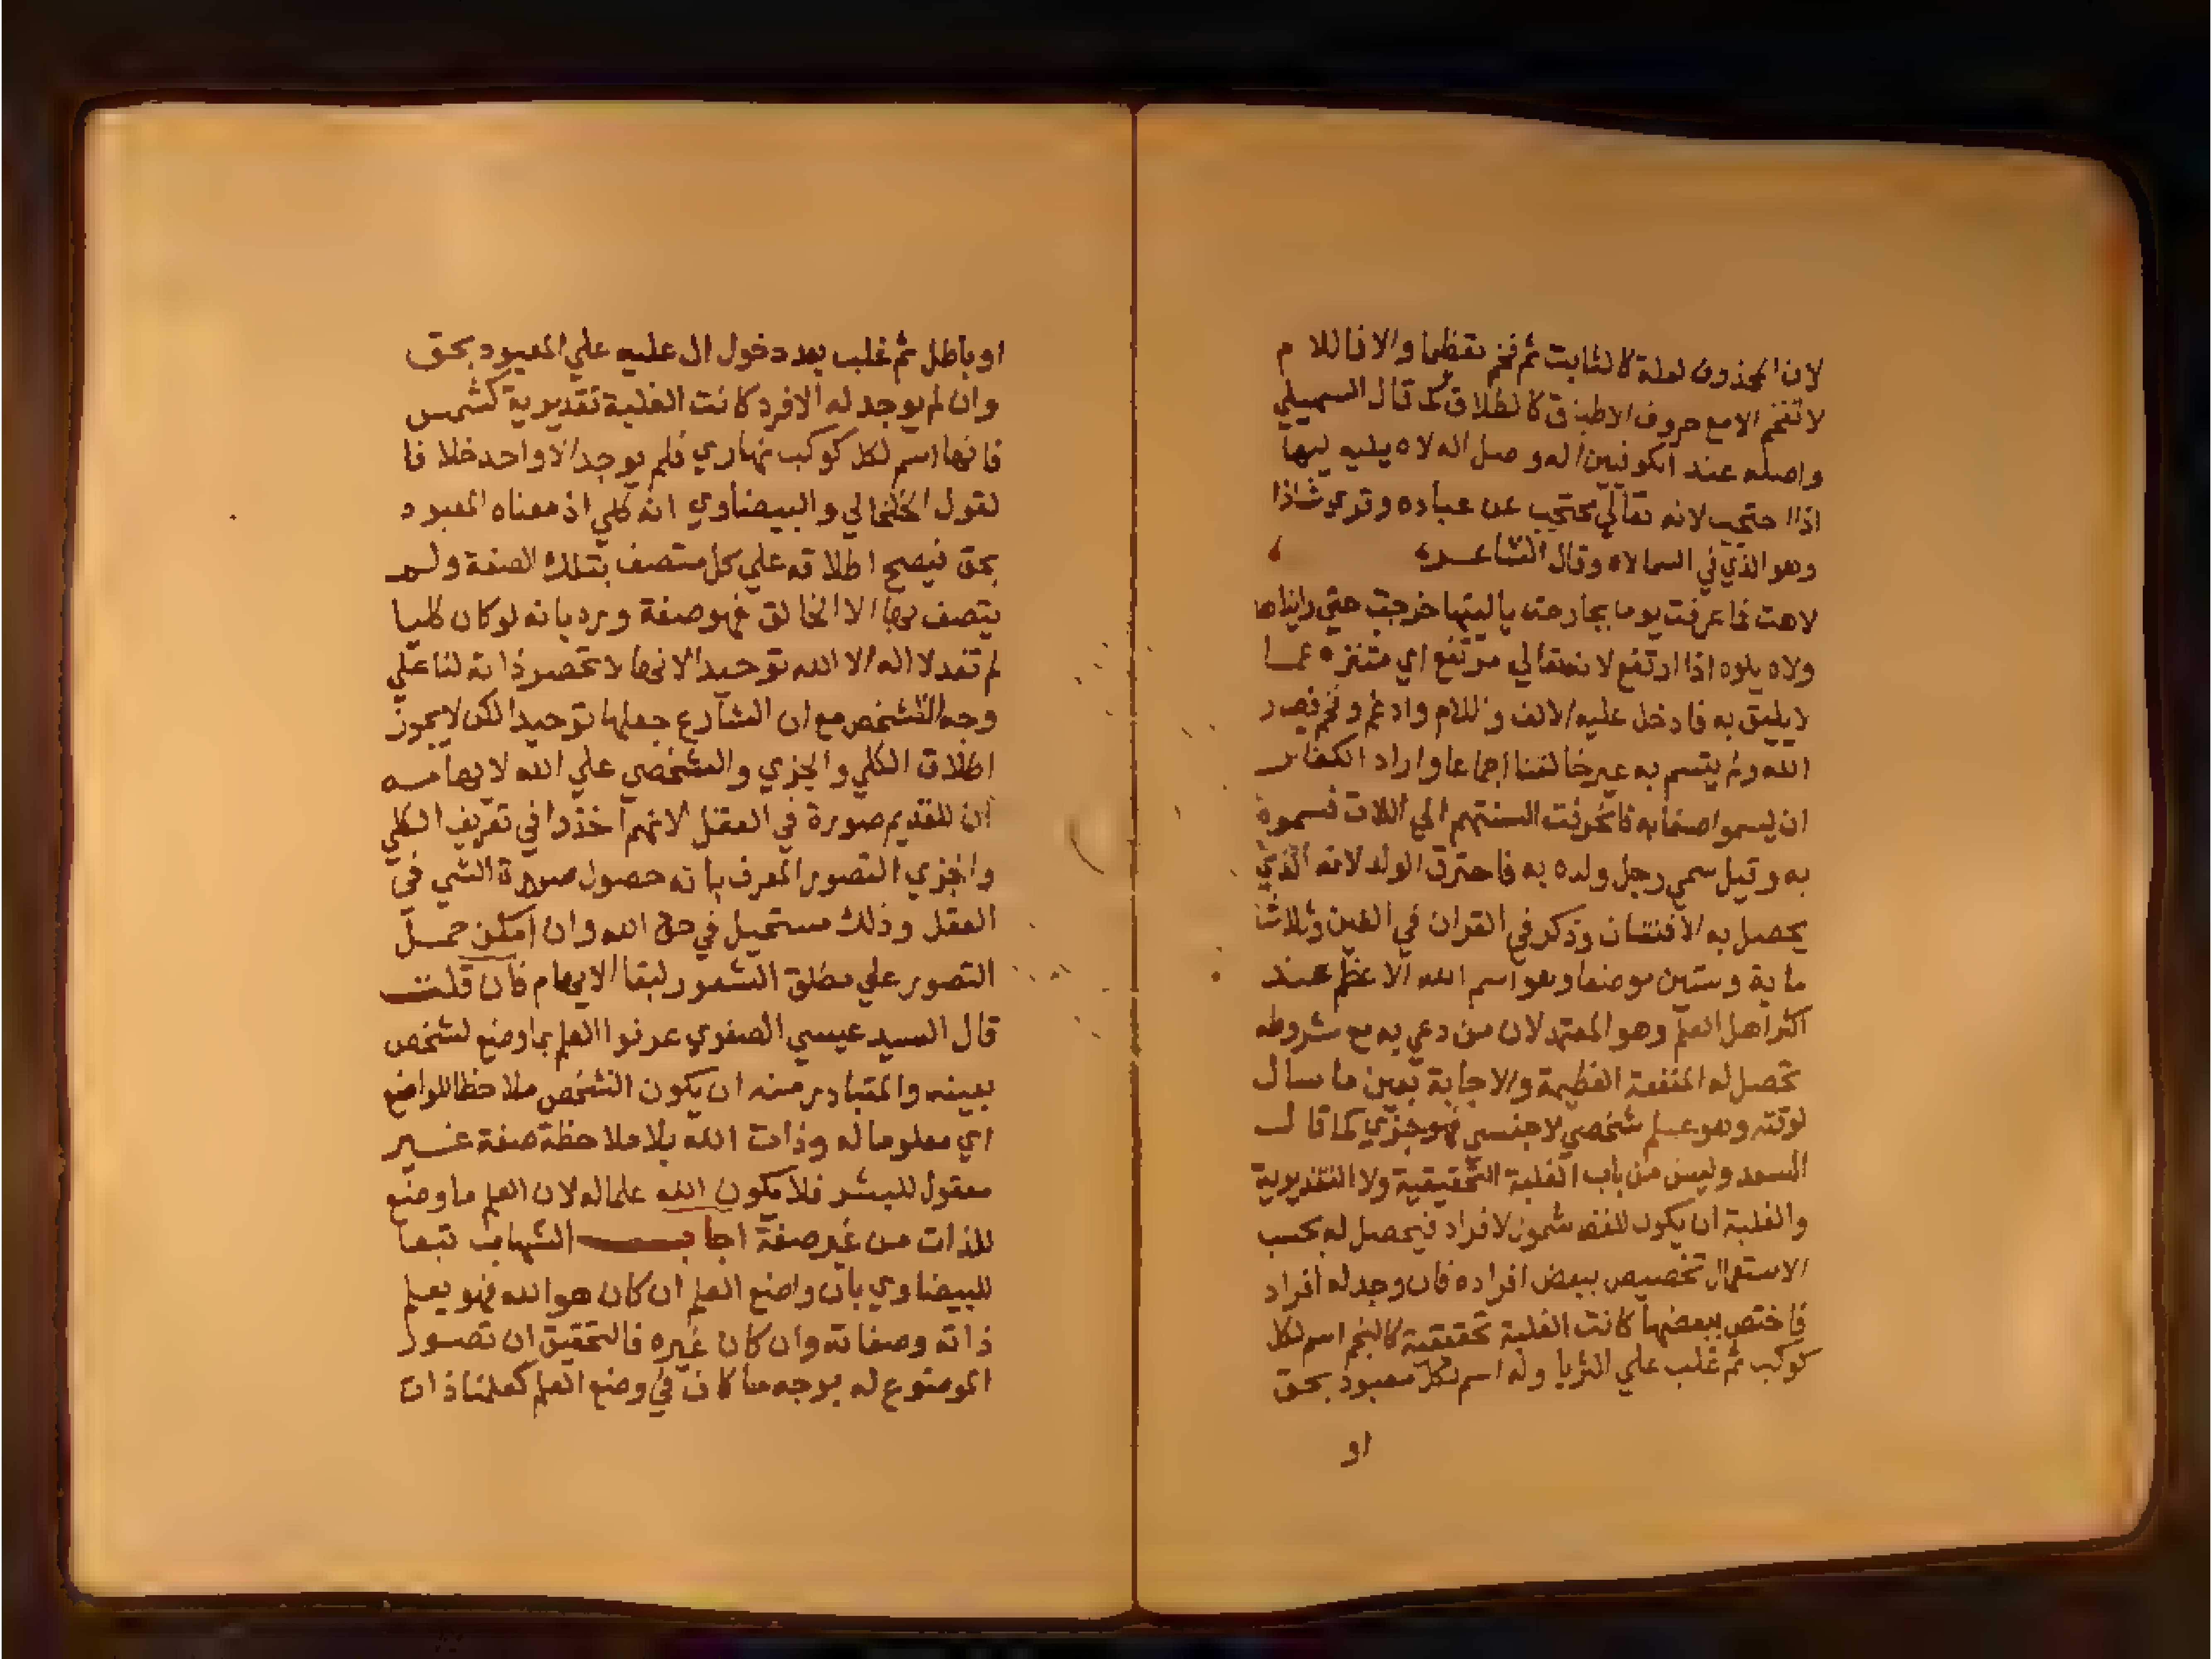 لان المحذوف لعلة كالثابت ثم فخم تعظيما والا فاللام
لا تفخم الا مع حروف الاطباق كالطلاق كما قال السهيلي
واصله عند الكوفيين اله وصل اله لاه يليه ليها
اذا احتجب لانه تعالي محتجب عن عباده وقري شاذا
وهو الذي في السما لاه وقال الشاعر
لاهت فما عرفت يوما بجارحته ياليتها خرجت حتي رايناها
ولاه يلوه اذا ارتفع لانه تعالي مرتفع اي متنزه عما
لا يليق به فادخل عليه الالف واللام وادغم وفخم فصار
الله ولم يتسم به غير خالقنا اجماعا واراد الكفار
ان يسموا صنما به فانحرفت السنتهم الي اللات فسموه
به وقيل سمي رجل ولده به فاحترق الولد لانه الذي
يحصل به الافتتان وذكر في القران في الفين وثلاث
ماية وستين موضعا وهو اسم الله الاعظم عند
اكثر اهل العلم وهو المعتمد لان من دعي به مع شروطه
تحصل له المنفعة العظيمة والاجابة بعين ما سال
لوقته وهو علم شخصي لا جنسي فهو جزي كما قال
السعد وليس من باب الغلبة التحقيقية ولا التقديرية
والغلبة ان يكون للفظ شمول لافراد فيحصل له بحسب
الاستعمال تخصيص ببعض افراده فان وجد له افراد
فاختص ببعضها كانت الغلبة تحقيقية كالنجم اسم لكل
كوكب ثم غلب علي الثريا وله اسم لكل معبود بحق
او
او باطل ثم غلب بعد دخول ال عليه علي المعبود بحق
وان لم يوجد له الا فرد كانت الغلبة تقديرية كشمس
فانها اسم لكل كوكب نهاري فلم يوجد الا واحد خلافا
لقول الخلخالي والبيضاوي انه كلي اذ معناه المعبود
بحق فيصح اطلاقه علي كل متصف بتلك الصفة ولم
يتصف بها الا الخالق فهو صفة ورد بانه لو كان كليا
لم تفد لا اله الا الله توحيدا لانها لا تحصر ذاته لنا علي
وجه الشخص مع ان الشارع جعلها توحيدا لكن لا يجوز
اطلاق الكلي والجزي والشخصي علي الله لايهامه
ان للقديم صورة في العقل لانهم اخذوا في تعريف الكلي
والجزي التصور المعرف بانه حصول صورة الشي في
العقل وذلك مستحيل في حق الله وان امكن حمل
التصور علي مطلق الشعور لبقا الايهام فان قلت
قال السيد عيسي الصفوي عرفوا العلم بما وضع لشخص
بعينه والمتبادر منه ان يكون الشخص ملاحظا للواضع
اي معلوما له وذات الله بلا ملاحظة صفة غير
معقول للبشر فلا يكون الله علما له لان العلم ما وضع
للذات من غير صفة اجاب الشهاب تبعا
للبيضاوي بان واضع العلم ان كان هو الله فهو يعلم
ذاته وصفاته وان كان غيره فالتحقيق ان تصور
الموضوع له بوجه ما كاف في وضع العلم كعلمنا ذات